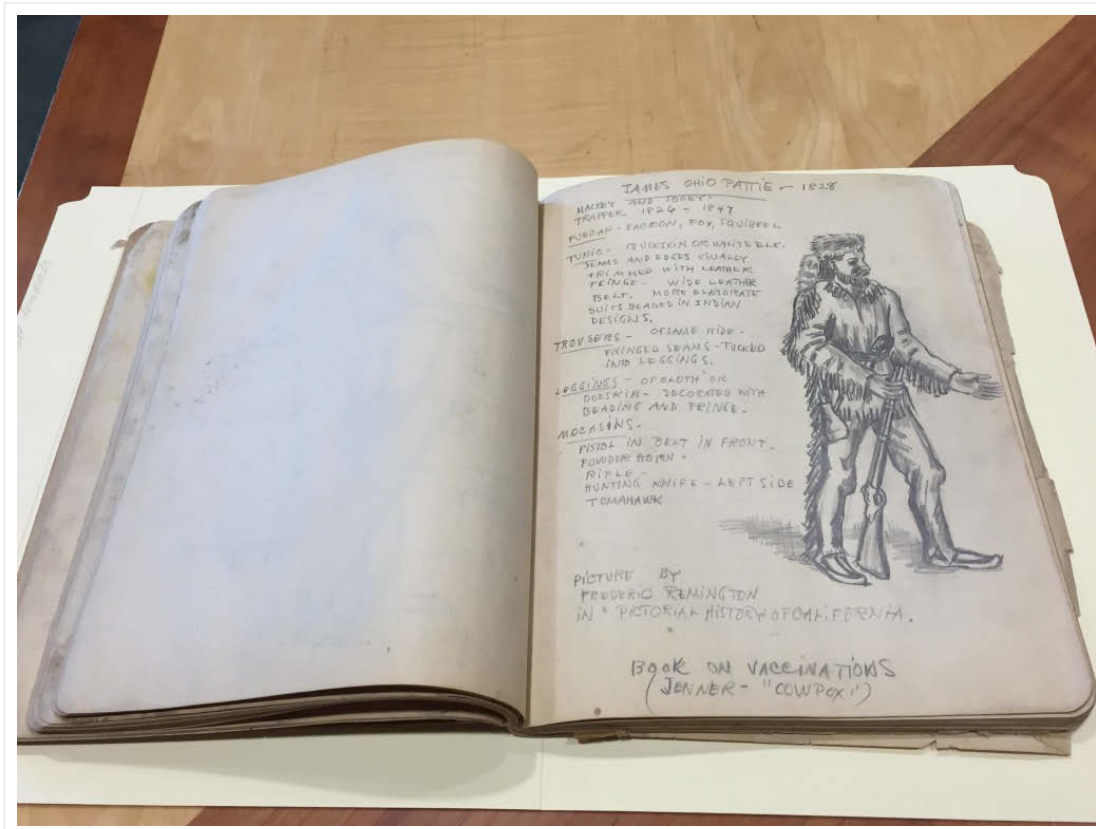 JAMES OHIO PATTIE - 1828
AND
TRAPPER 1826 - 1847
FURCAP - RACOON, FOX, SQUIRREL
TUNIC - BUCKSKIN OR WHITE ELK.
SEAMS AND EDGES USUALLY
TRIMMED WITH LEATHER
FRINGE - WIDE LEATHER
BELT. MORE ELABORATE
SUITS BEADED IN INDIAN
DESIGNS.
TROUSERS - OF SAME HIDE -
FRINGED SEAMS - TUCKED
INTO LEGGINGS.
LEGGINGS - OF CLOTH OR
DOESKIN - DECORATED WITH
BEADING AND FRINGE -
MOCASINS -
PISTOL IN BELT IN FRONT.
POWDER HORN -
RIFLE -
HUNTING KNIFE - LEFT SIDE
TOMAHAWK
PICTURE BY
FREDERIC REMINGTON
IN "PICTORIAL HISTORY OF CALIFORNIA.
BOOK ON VACCINATIONS
(JENNER - "COWPOX")